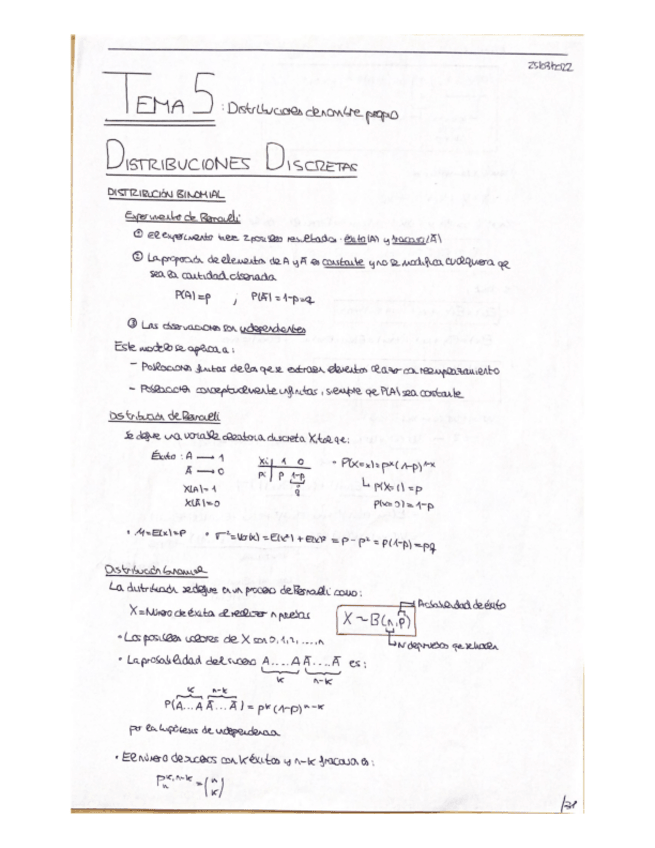 25/03/2022
TEMA 5: Distribuciones de nombre propio
DISTRIBUCIONES DISCRETAS
DISTRIBUCIÓN BINOMIAL
Experimento de Bernoulli
① El experimento tiene 2 posibles resultados: éxito (A) y fracaso (Ā)
② La proporción de elementos de A y Ā es constante y no se modifica cualquiera que
sea la cantidad observada
P(A)=p ; P(Ā)=1-p=q
③ Las observaciones son independientes
Este modelo se aplica a:
- Poblaciones finitas de las que se extraen elementos al azar con reemplazamiento
- Población conceptualmente infinitas, siempre que P(A) sea constante
Distribución de Bernoulli
Se define una variable aleatoria discreta X tal que:
Éxito: A → 1
Ā → 0
X(A)=1
X(Ā)=0
Xi 1 0
pi p 1-p
q
• P(X=x)=pˣ(1-p)¹⁻ˣ
P(X=1)=p
P(X=0)=1-p
• M=E(X)=P • σ²=Var(x)=E(x²)+E(x)²=P-P²=P(1-p)=pq
Distribución binomial
La distribución se define en un proceso de Bernoulli como:
X=Número de éxitos al realizar n pruebas
X~B(n,p)
Probabilidad de éxito
Nº de pruebas que se hacen
• Los posibles valores de X son 0,1,2,...,n
• La probabilidad del suceso A...A Ā...Ā es:
k n-k
k n-k
P(A...A Ā...Ā)=pᵏ(1-p)ⁿ⁻ᵏ
por la hipótesis de independencia
• El número de sucesos con k éxitos y n-k fracasos es:
Pₙᵏ,ⁿ⁻ᵏ=(n k)